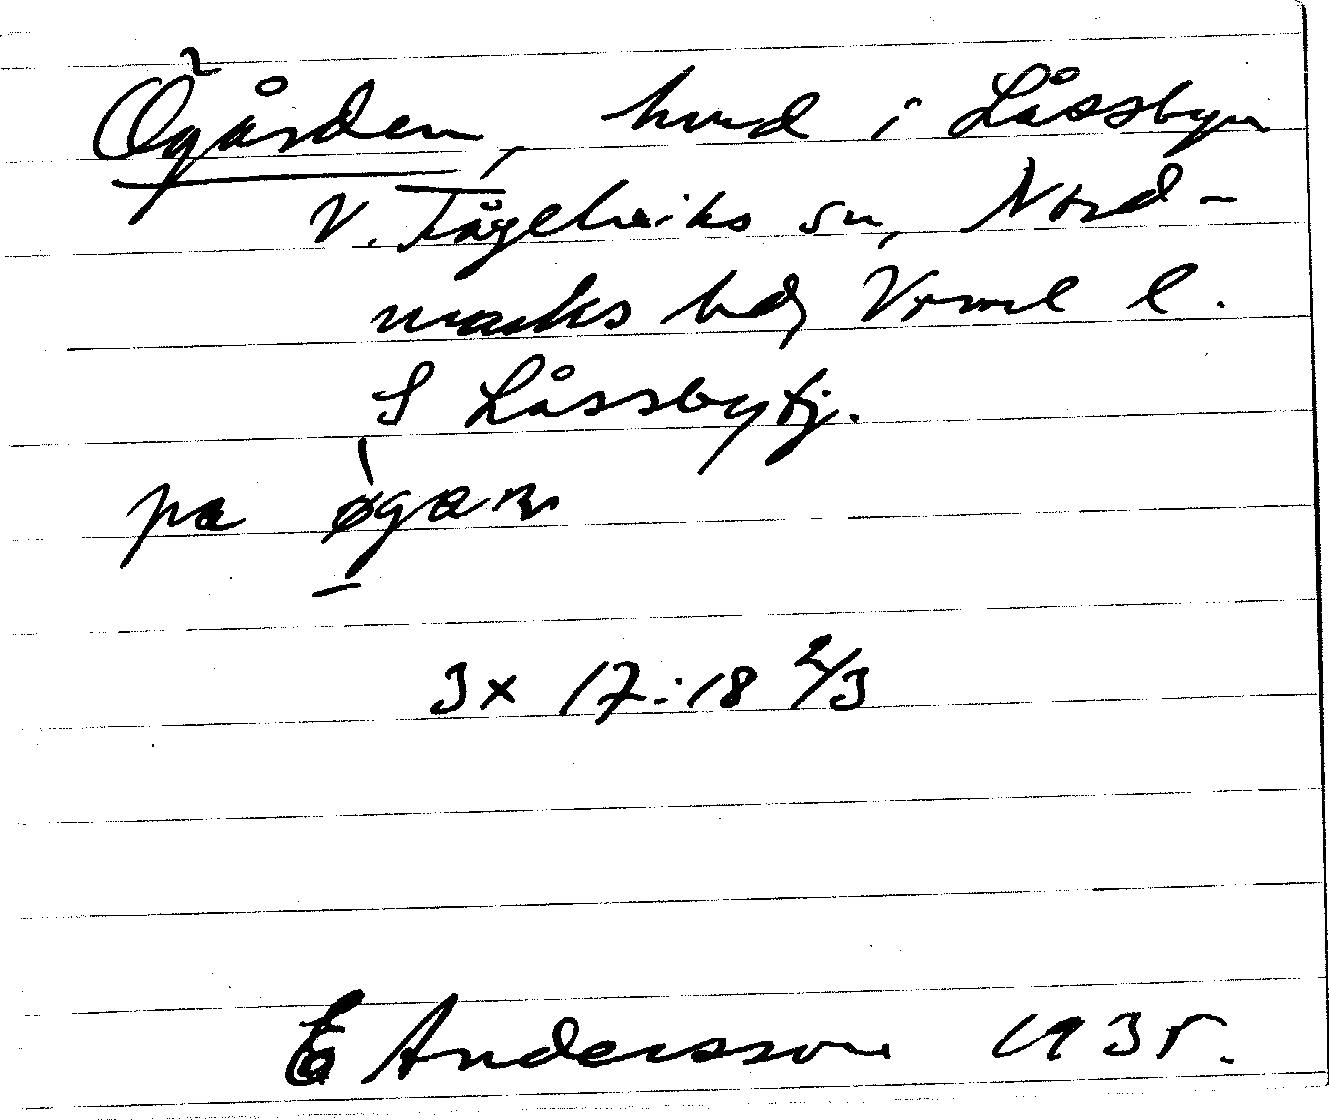 Ögården, hmd i Låssbyn
V. Fågelviks sn, Nord-
marks hd, Vrml l.
S Låssbytj.
pa øgaɳ
3x 17:18 2/3
E Andersson 1935.